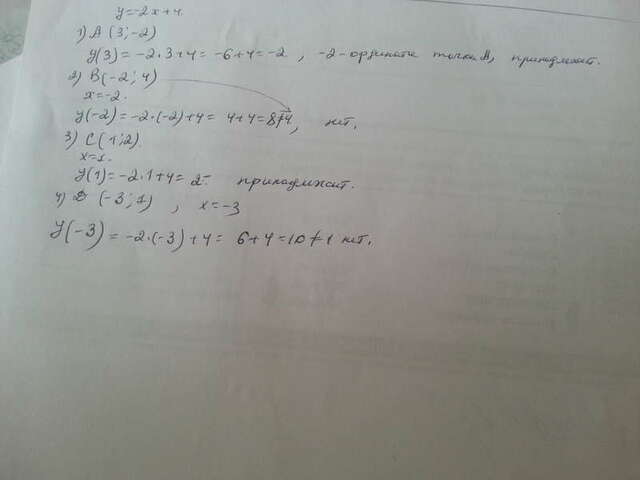 y=-2x+4.
1) A (3;-2)
y(3) = -2·3+4= -6+4=-2 , -2-ордината точки A, принадлежит.
2) B(-2; 4)
x=-2.
y(-2)= -2·(-2)+4= 4+4=8≠4, нет.
3) C(1;2).
x=1.
y(1)=-2·1+4= 2= принадлежит.
4) D (-3;1) , x=-3
y(-3)= -2·(-3)+4= 6+4=10≠1 нет.